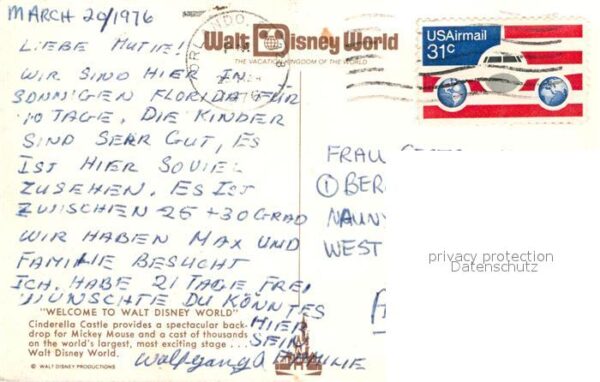 MARCH 20/1976
LIEBE MUTIE!
WIR SIND HIER IN
SONNIGEN FLORIDA FÜR
10 TAGE. DIE KINDER
SIND SEHR GUT, ES
IST HIER SOVIEL
ZUSEHEN. ES IST
ZWISCHEN 25 + 30 GRAD
WIR HABEN MAX UND
FAMILIE BESUCHT
ICH HABE 21 TAGE FREI
WÜNSCHTE DU KÖNNTES
HIER
SEIN
Wolfgang & FAMILIE
"WELCOME TO WALT DISNEY WORLD"
Cinderella Castle provides a spectacular back-
drop for Mickey Mouse and a cast of thousands
on the world's largest, most exciting stage . . .
Walt Disney World.
© WALT DISNEY PRODUCTIONS
Walt Disney World
THE VACATION KINGDOM OF THE WORLD
ORLANDO,
USAirmail
31c
FRAU
① BER
NAUN
WEST
privacy protection
Datenschutz